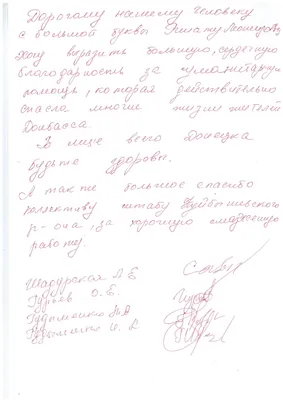 Дорогому нашему Человеку
с большой буквы Ринату Леонидовичу
Хочу выразить большую, сердечную
благодарность за гуманитарную
помощь, которая действительно
спасла многие жизни жителей
Донбасса.
В лице всего Донецка
будьте здоровы.
А так же большое спасибо
коллективу штаба Куйбышевского
р-она, за хорошую слаженную
работу.
Шадурская Л Б
Гуреев О. Б.
Гудыменко Н.Д
Гудыменко И. А.